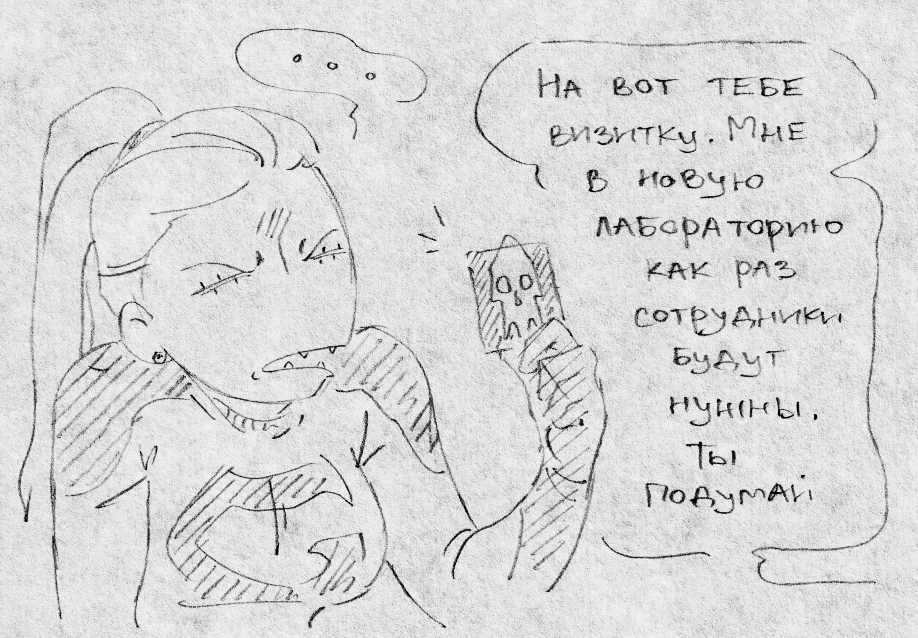 ...
НА ВОТ ТЕБЕ
ВИЗИТКУ. МНЕ
В НОВУЮ
ЛАБОРАТОРИЮ
КАК РАЗ
СОТРУДНИКИ
БУДУТ
НУЖНЫ.
ТЫ
ПОДУМАЙ